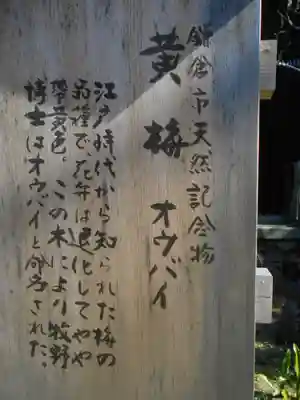 鎌倉市天然記念物
黄梅 オウバイ
江戸時代から知られた梅の
希種で、花弁は退化してやや
帯黄色。この木により牧野
博士はオウバイと命名された。